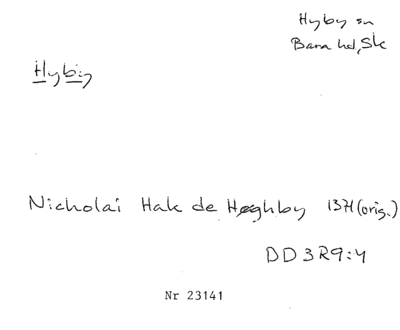 Hyby sn
Bara hd, Sk
Hyby
Nicholai Hak de Høghby 1371 (orig.)
DD 3 R9:4
Nr 23141